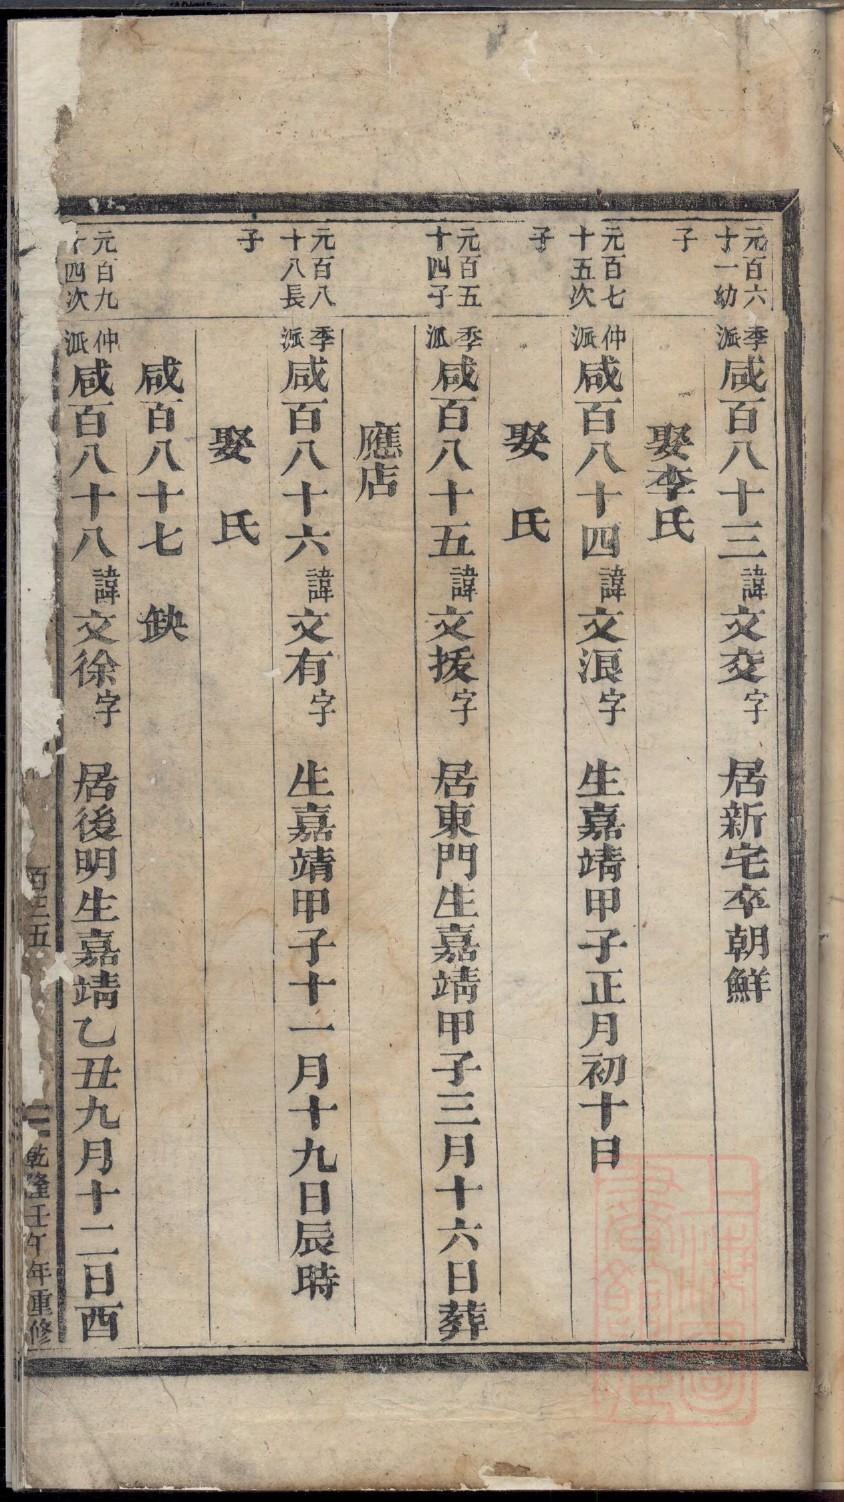 元百六十一幼子
季派咸百八十三諱文交字 居新宅卒朝鮮
娶李氏
元百七十五次子
仲派咸百八十四諱文浪字 生嘉靖甲子正月初十日
娶 氏
元百五十四子
季派咸百八十五諱文援字 居東門生嘉靖甲子三月十六日葬
應店
元百八十八長子
季派咸百八十六諱文有字 生嘉靖甲子十一月十九日辰時
娶 氏
咸百八十七 缺
元百九十四次
仲派咸百八十八諱文徐字 居後明生嘉靖乙丑九月十二日酉
百三五
乾隆壬午年重修